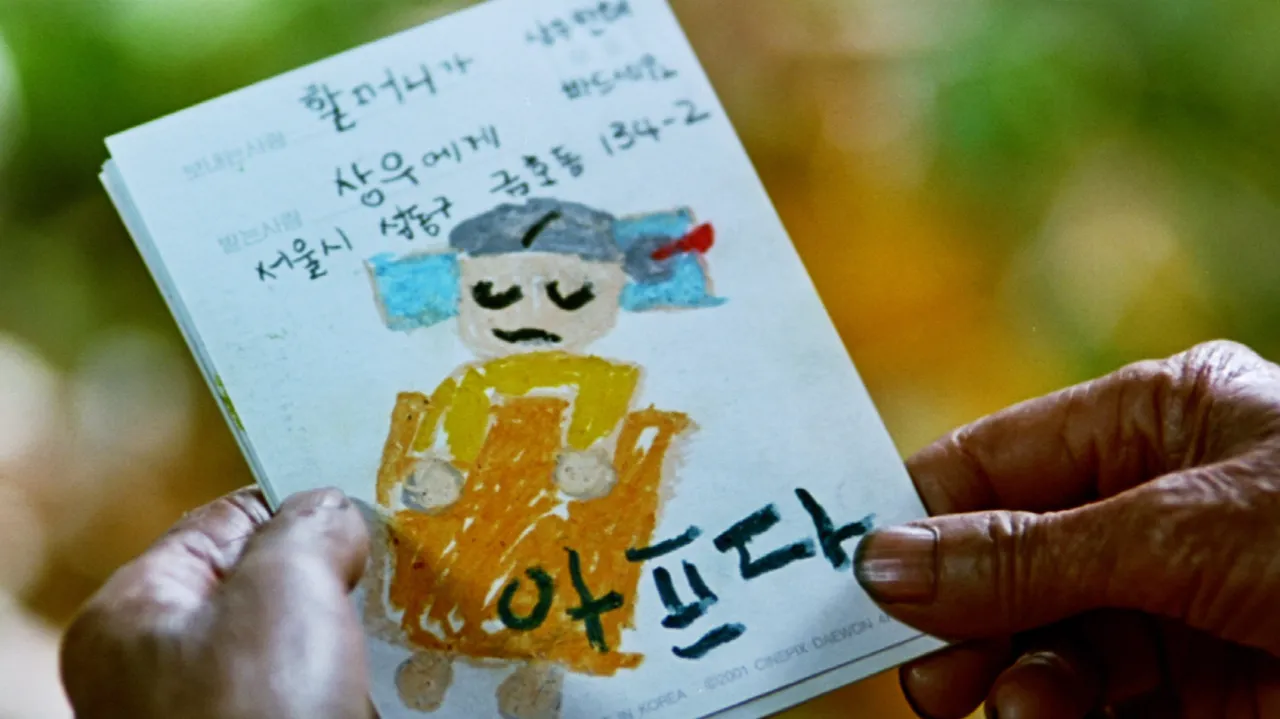 할머니가
보내는사람
상우에게
받는사람
서울시 성동구 금호동 134-2
아프다
IN KOREA ©2001 CINEPIX DAEWON